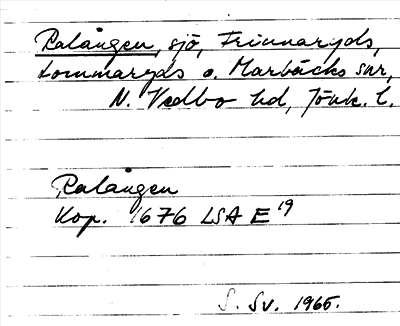 Ralången, sjö, Frinnaryds,
Lommaryds o. Marbäcks snr,
N. Vedbo hd, Jönk. l.
Ralången
Kop. 1676 LSA E 19
S. Sv. 1965.